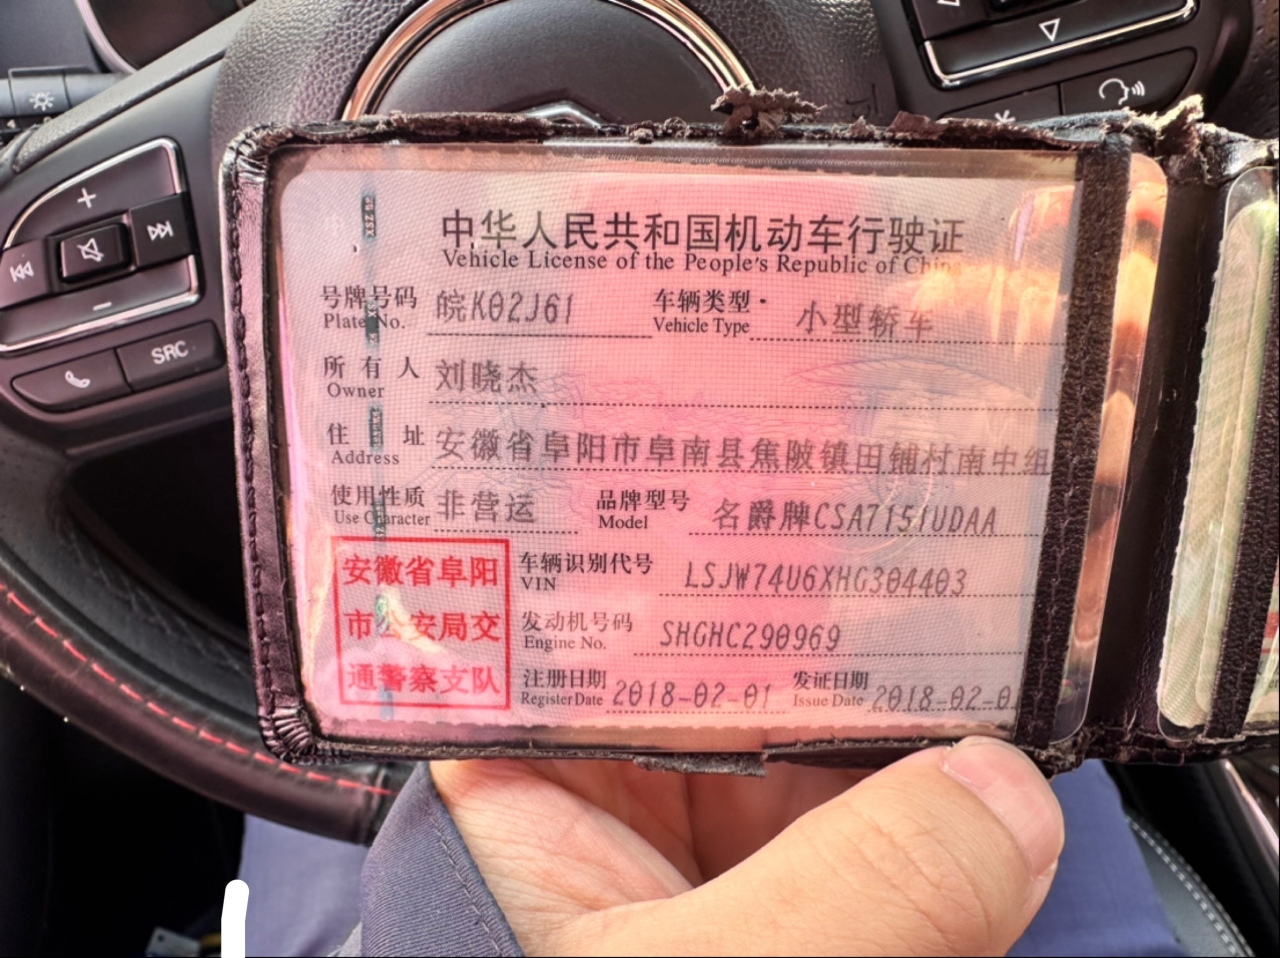 SRC
中华人民共和国机动车行驶证
Vehicle License of the People's Republic of China
号牌号码 皖K02J61 车辆类型 小型轿车
Plate No. Vehicle Type
所有人 刘晓杰
Owner
住址 安徽省阜阳市阜南县焦陂镇田铺村南中组
Address
使用性质 非营运 品牌型号 名爵牌CSA7151UDAA
Use Character Model
安徽省阜阳
市公安局交
通警察支队
车辆识别代号 LSJW74U6XHG304403
VIN
发动机号码 SHGHC290969
Engine No.
注册日期 2018-02-01 发证日期 2018-02-0
Register Date Issue Date